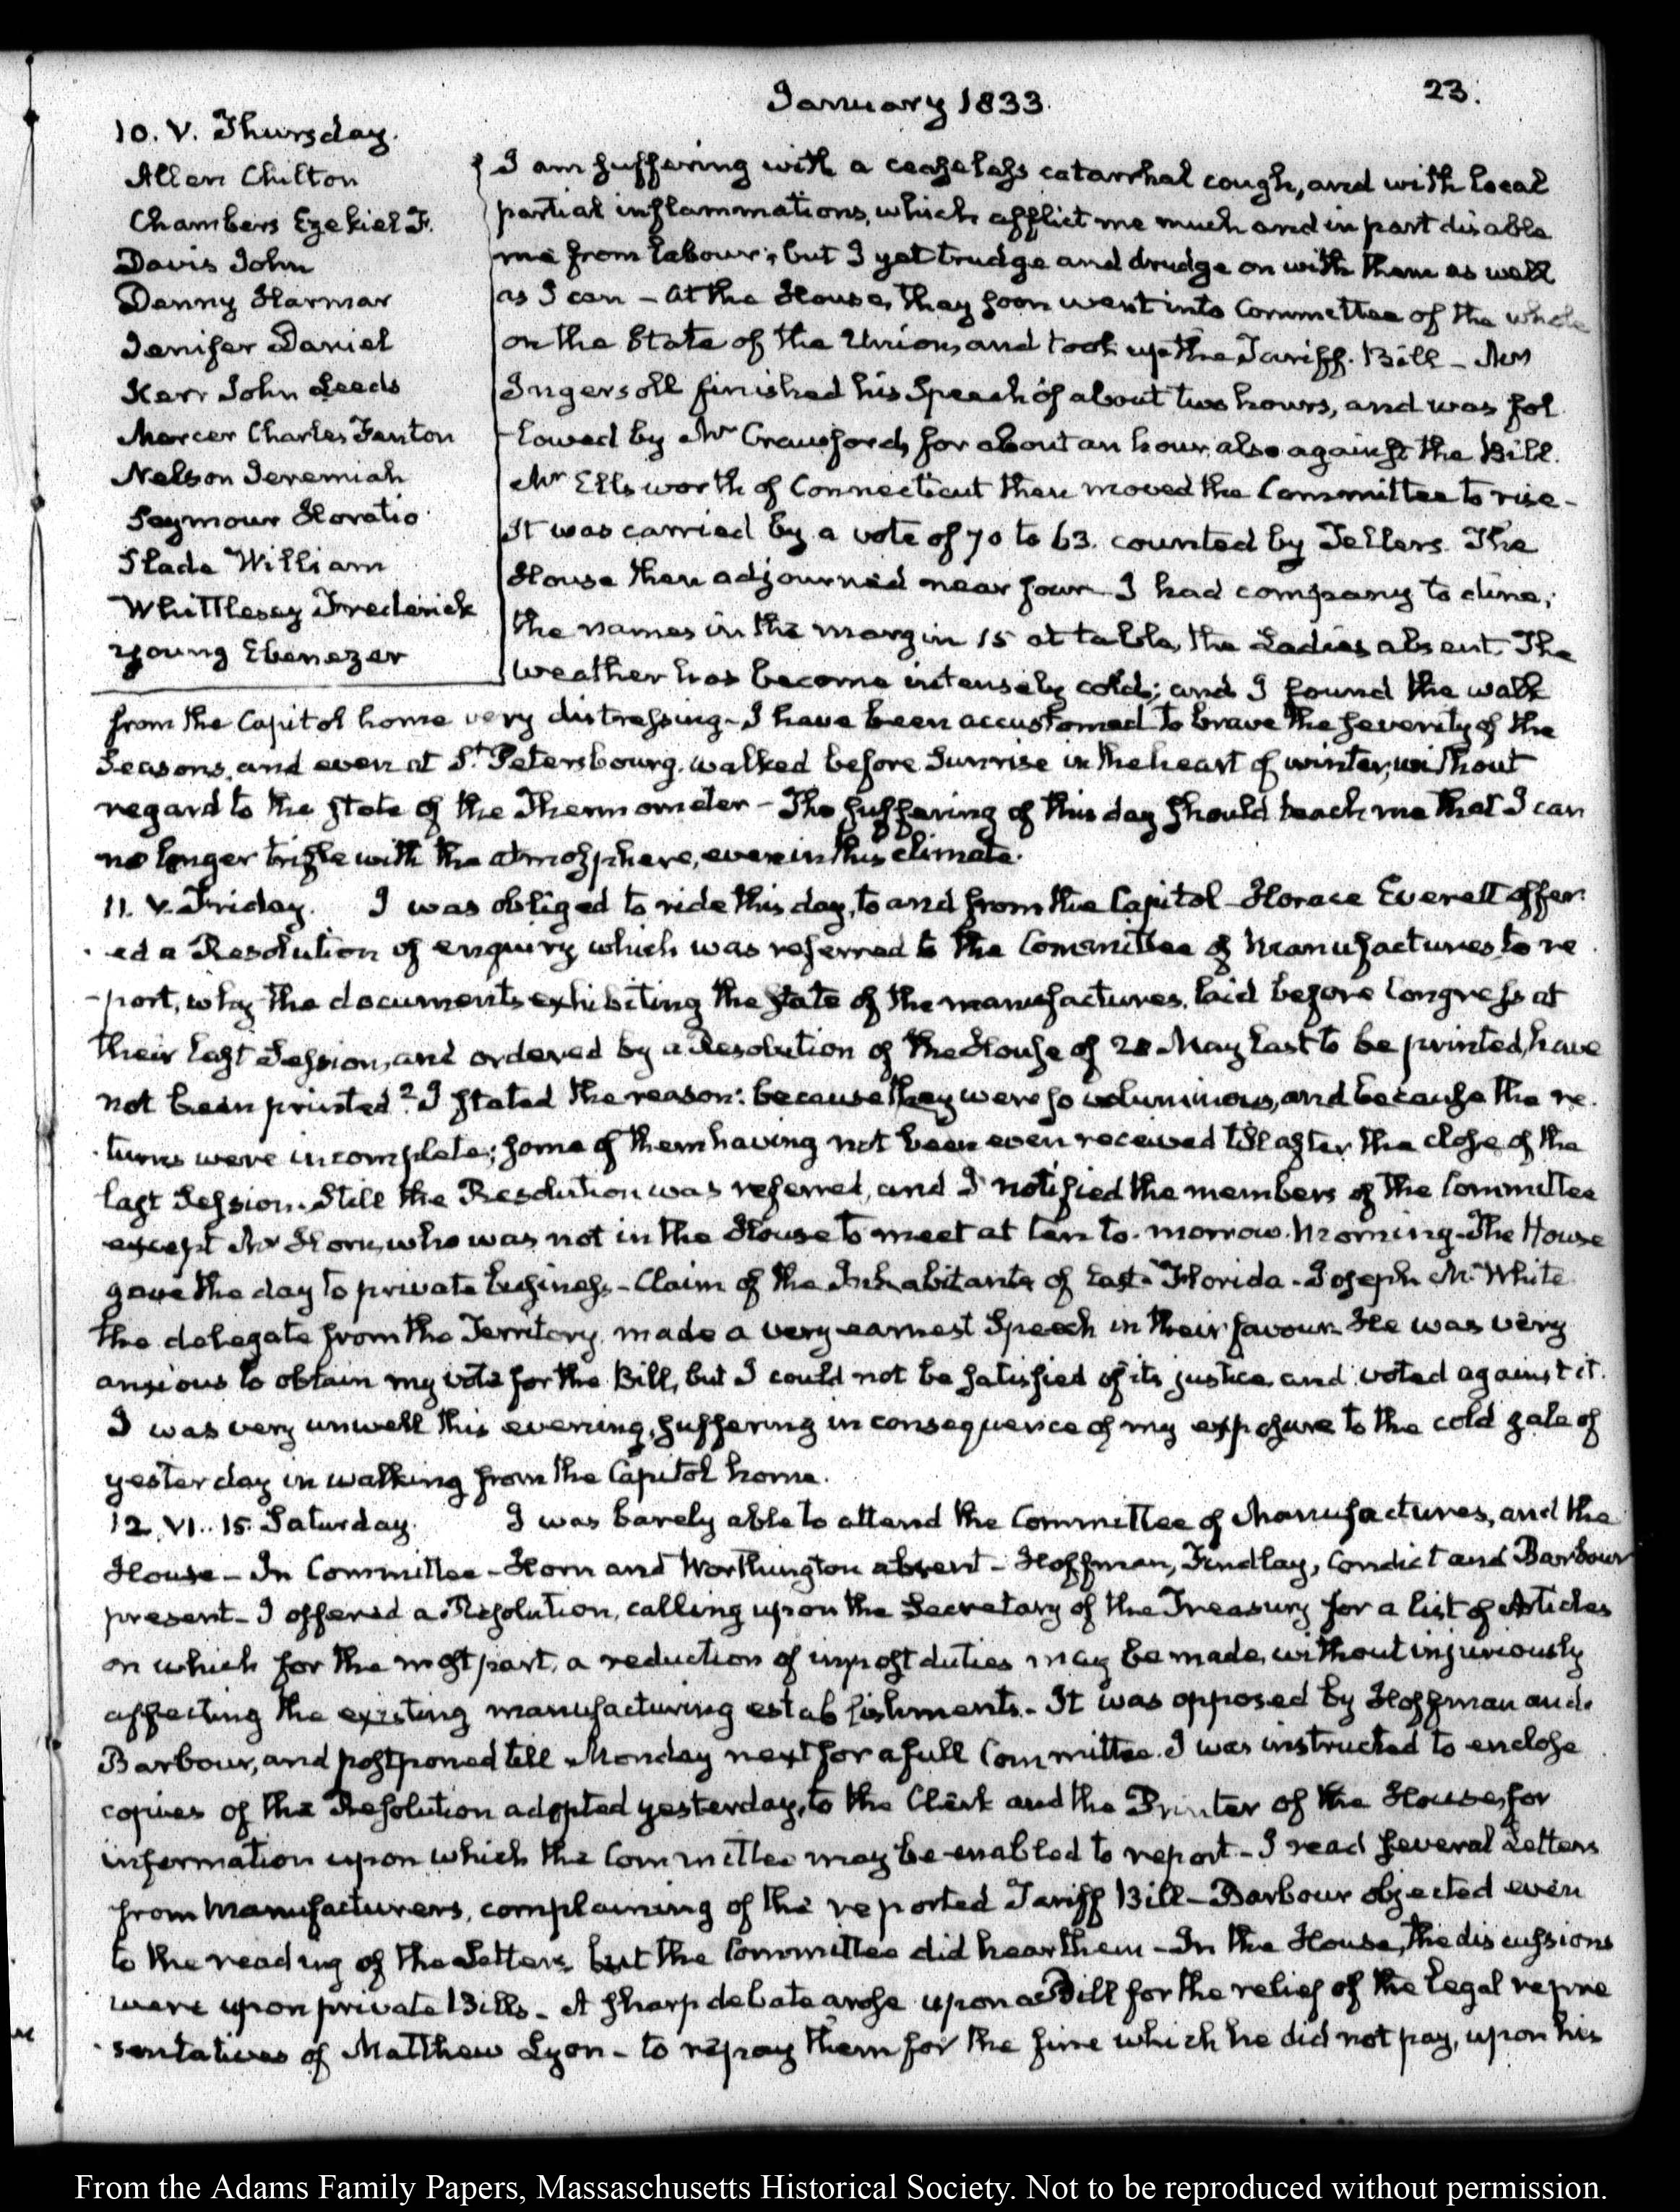 January 1833.
23.
10. V. Thursday.
Allen Chilton
Chambers Ezekiel F.
Davis John
Denny Harmar
Jenifer Daniel
Kerr John Leeds
Mercer Charles Fenton
Nelson Jeremiah
Seymour Horatio
Slade William
Whittlesey Frederick
Young Ebenezer
I am suffering with a ceaseless catarrhal cough, and with local
partial inflammations, which afflict me much and in part disable
me from labour; but I yet trudge and drudge on with them as well
as I can - At the House, they soon went into Committee of the whole
on the State of the Union, and took up the Tariff. Bill - Mr
Ingersoll finished his Speech of about two hours, and was fol
-lowed by Mr Crawford, for about an hour, also against the Bill.
Mr Ellsworth of Connecticut then moved the Committee to rise -
It was carried by a vote of 70 to 63. counted by Tellers. The
House then adjourned near four - I had company to dine;
the names in the margin 15 at table, the Ladies absent. The
weather has become intensely cold; and I found the walk
from the Capitol home very distressing - I have been accustomed to brave the severity of the
Seasons, and even at St. Petersbourg, walked before Sunrise in the heart of winter, without
regard to the state of the Thermometer - The suffering of this day should teach me that I can
no longer trifle with the atmosphere, even in this climate.
11. V. Friday. I was obliged to ride this day, to and from the Capitol - Horace Everett offer
-ed a Resolution of enquiry which was referred to the Committee of Manufactures, to re
-port, why the documents exhibiting the State of the manufactures, laid before Congress at
their last Session, and ordered by a Resolution of the House of 28 May last to be printed, have
not been printed? I stated the reason: because they were so voluminous, and because the re-
-turns were incomplete; some of them having not been even received till after the close of the
last Session. Still the Resolution was referred, and I notified the members of the Committee
except Mr Horn, who was not in the House to meet at ten to-morrow. Morning - The House
gave the day to private business - Claim of the Inhabitants of East-Florida - Joseph M. White
the delegate from the Territory, made a very earnest Speech in their favour. He was very
anxious to obtain my vote for the Bill, but I could not be satisfied of its justice, and voted against it.
I was very unwell this evening, suffering in consequence of my exposure to the cold gale of
yesterday in walking from the Capitol home.
12. VI. 15. Saturday. I was barely able to attend the Committee of Manufactures, and the
House - In Committee - Horn and Worthington absent - Hoffman, Findlay, Condict and Barbour
present - I offered a Resolution, calling upon the Secretary of the Treasury for a list of Articles
on which for the most part, a reduction of impost duties may be made, without injuriously
affecting the existing manufacturing establishments - It was opposed by Hoffman and
Barbour, and postponed till Monday next for a full Committee. I was instructed to enclose
copies of the Resolution adopted yesterday, to the Clerk and the Printer of the House, for
information upon which the Committee may be enabled to report - I read several Letters
from Manufacturers, complaining of the reported Tariff Bill - Barbour objected even
to the reading of the Letters, but the Committee did hear them - In the House, the discussions
were upon private Bills - A sharp debate arose upon a Bill for the relief of the legal repre
-sentatives of Matthew Lyon - to repay them for the fine which he did not pay, upon his
From the Adams Family Papers, Massachusetts Historical Society. Not to be reproduced without permission.